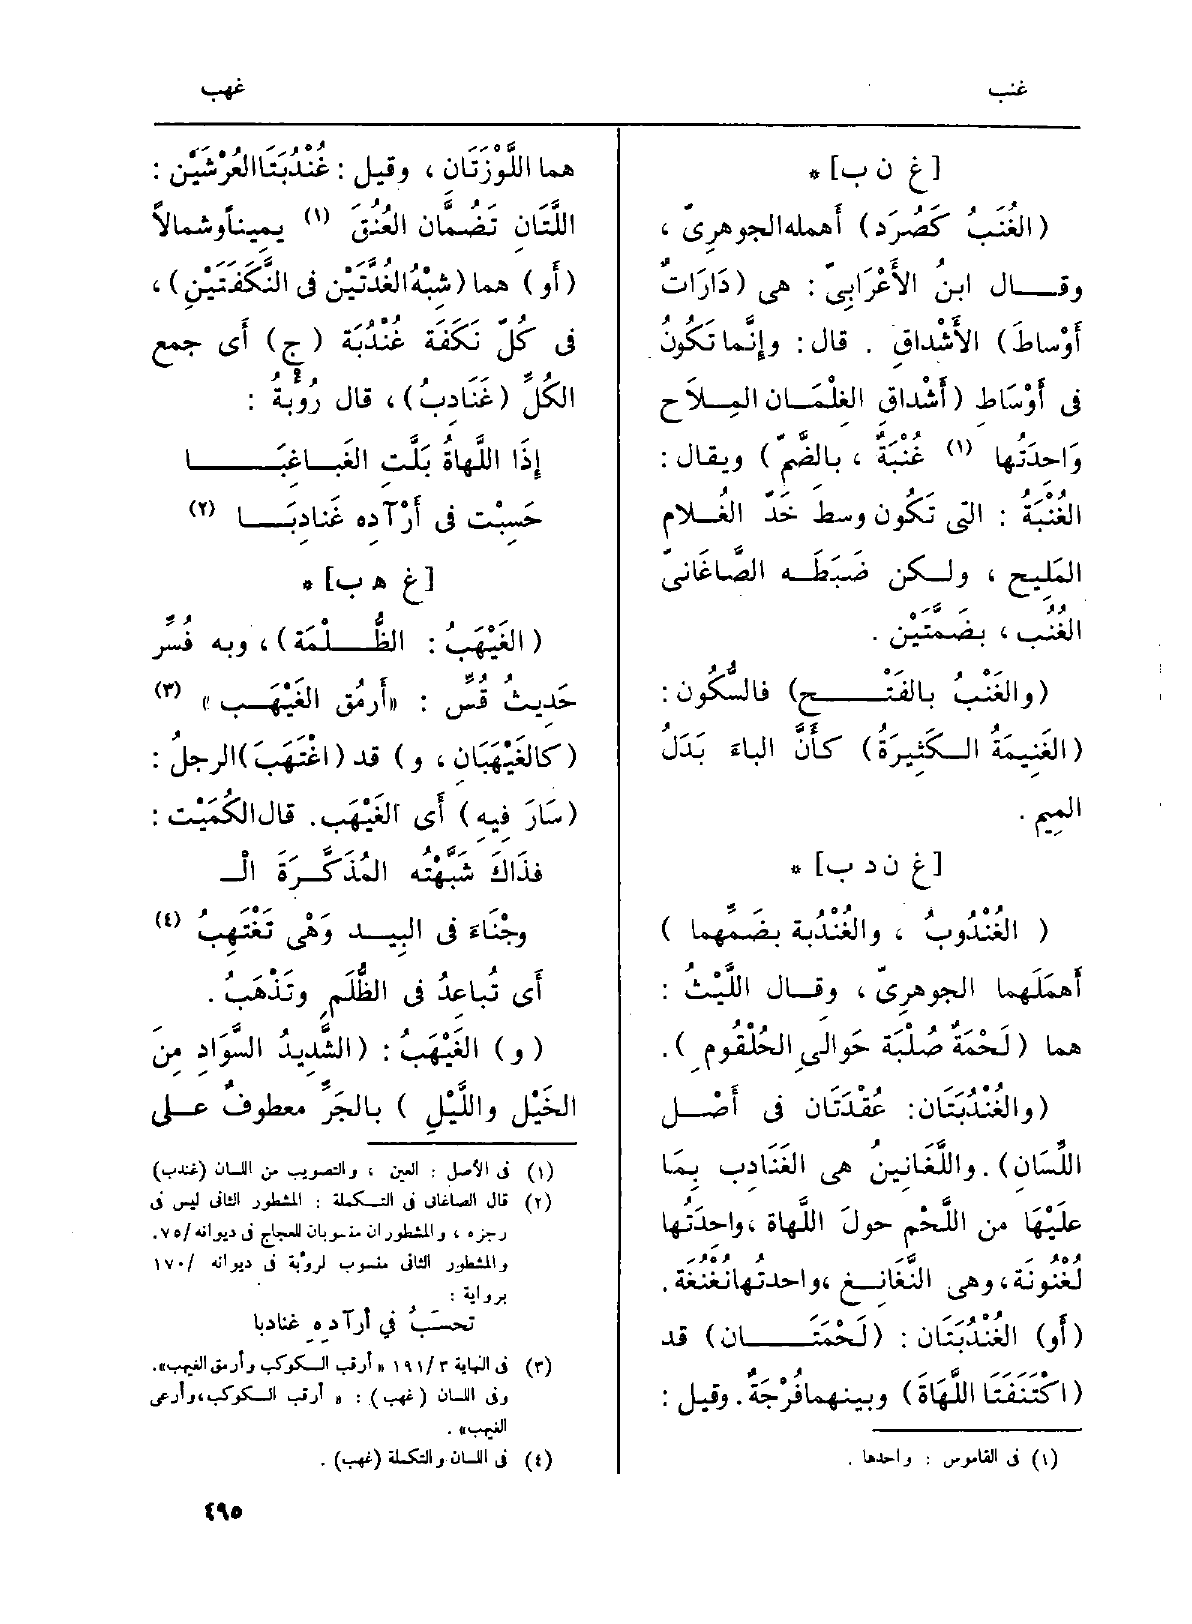 غنب
غهب
[غ ن ب] *
(الغُنَبُ كَصُرَد) أهمله الجوهرىّ ،
وقال ابنُ الأَعْرَابِىّ : هى (دَارَاتُ
أَوْساطَ) الأَشْداقِ . قال : وإنَّما تَكُونُ
فى أَوْسَاطِ (أَشْداقِ الغِلْمَانِ المِلاَحِ
وَاحِدَتُها (١) غُنْبَةٌ ، بالضَّمّ) ويقال :
الغُنْبَةُ : التى تَكُون وسطَ خَدّ الغُلامِ
المَلِيح ، ولكن ضَبَطَه الصَّاغَانىّ
الغُنُب ، بضَمَّتَيْن .
(والغَنْبُ بالفَتْح) فالسُّكُون :
(الغَنِيمَةُ الكَثِيرَةُ) كَأَنَّ الباءَ بَدَلُ
المِيم .
[غ ن د ب] *
( الغُنْدُوبُ ، والغُنْدُبة بضَمِّهما )
أَهمَلَهما الجوهرىّ ، وقال اللَّيْثُ :
هما (لَحْمَةٌ صُلْبَة حَوالَىِ الحُلْقُوم ِ).
(والغُنْدُبَتَان: عُقْدَتَان فى أَصْلِ
اللِّسَان). واللَّغَانِينُ هى الغَنَادِب بِمَا
عليْهَا من اللَّحْمِ حولَ اللَّهاة ،واحِدَتُها
لُغْنُونَة، وهى النَّغَانِغ ،واحدتُها نُغْنُغَة.
(أو) الغُنْدُبَتَان : (لَحْمَتَان) قد
(اكْتَنَفَتَا اللَّهَاةَ) وبينهما فُرْجَةٌ. وقيل :
(١) فى القاموس : واحدها .
هما اللَّوْزَتَانِ ، وقيل : غُنْدُبَتَا العُرْشَيْنِ :
اللَّتَانِ تَضُمَّان العُنُقَ (١) يميناً وشمالاً
(أَو) هما (شِبْهُ الغُدَّتَيْنِ فى النَّكَفَتَيْنِ)،
فى كُلّ نَكَفَة غُنْدُبَة (ج) أَى جمع
الكُلِّ (غَنَادِبُ)، قال رُؤْبةُ :
إِذَا اللَّهاةُ بَلَّتِ الغَباغِبَا
حَسِبْت فى أَرْآدِه غَنادِبَا (٢)
[غ ه ب] *
(الغَيْهَبُ : الظُّلْمَة)، وبه فُسِّر
حَدِيثُ قُسٍّ : «أَرمُق الغَيْهَب» (٣)
(كالغَيْهَبَان ، و) قد (اغْتَهَبَ) الرجلُ :
(سَارَ فِيه) أَى الغَيْهَب. قال الكُمَيْت :
فذَاكَ شَبَّهْتُه المُذَكَّرَةَ الْـ
وجْنَاءَ فى البِيدِ وَهْى تَغْتَهِبُ (٤)
أَى تُباعِدُ فى الظُّلَمِ وتَذْهَبُ .
(و) الغَيْهَبُ : (الشَّدِيدُ السَّوَادِ مِنَ
الخَيْلِ واللَّيْلِ ) بالجَرِّ معطوفٌ على
(١) فى الأصل : العين ، والتصويب من اللسان (غندب)
(٢) قال الصاغانى فى التكملة : المشطور الثانى ليس فى
رجزه ، والمشطوران منسوبان للعجاج فى ديوانه /٧٥.
والمشطور الثانى منسوب لرؤبة فى ديوانه /١٧٠
برواية :
تحسَبُ في أرآدِهِ غنادبا
(٣) فى النهاية ٣ /١٩١ «أرقب الكوكب وأرمق الغيهب».
وفى اللسان (غهب) : « أرقب الكوكب، وأرعى
الغيهب» .
(٤) فى اللسان والتكملة (غهب) .
٤٩٥